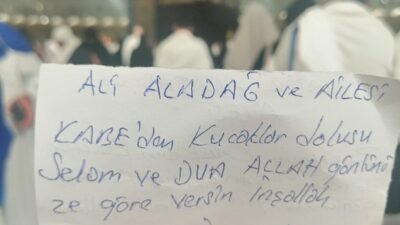 ALİ ALADAĞ ve AİLESİ
KABE'den Kucaklar dolusu
Selam ve DUA ALLAH gönlünü
ze göre versin İnşallah